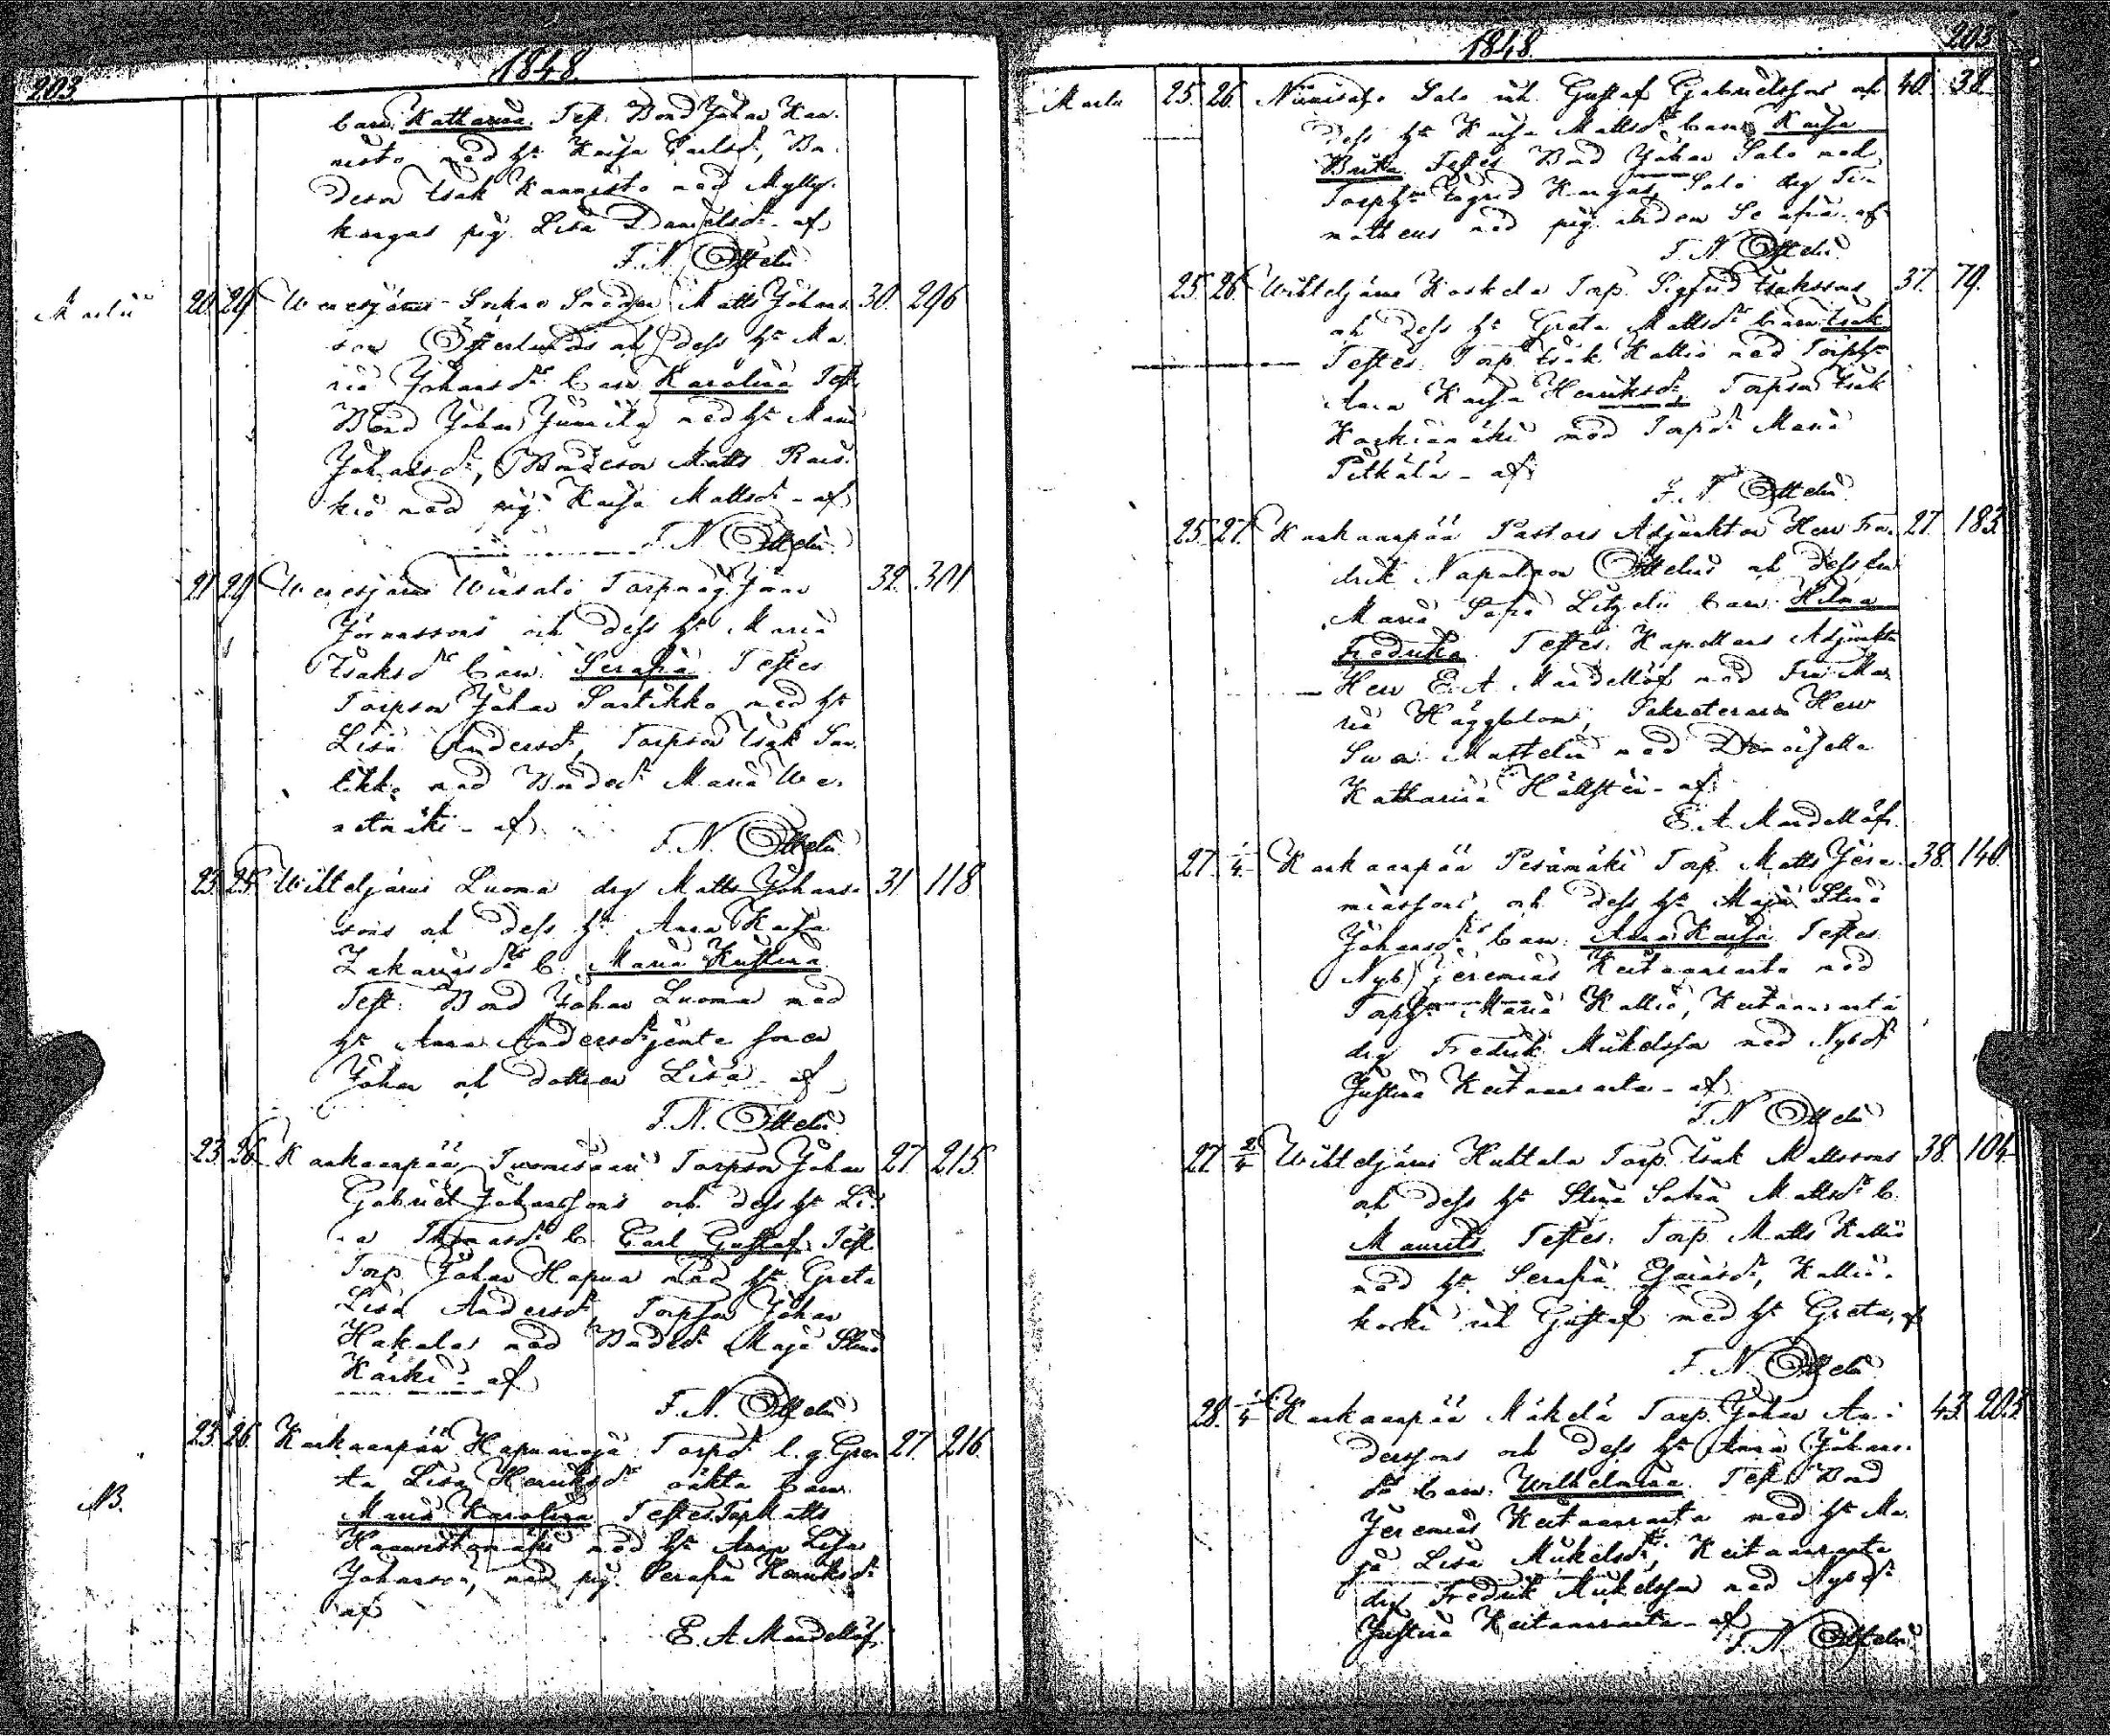 203.
1848.
barn Katharina Test: Bond Johan Kan-
nisto med h:u Kaisa Carlsd:r, Bon-
deson Isak Kannisto med Mylly-
kangas pig. Lisa Danielsd:r af
F. N. Ottelin
Martii 20. 29. Wenesjärvi Matts Johans- 30. 296
son Österlunds och dess h:u Ma-
ria Johansd:rs barn Karolina Test:
Bond Johan Junnila med h:u Maria
Johansd:r, Bondeson Matts Rais-
kio med pig. Kaisa Mattsd:r - af
F. N. Ottelin
21 29 Wenesjärvi Torpmåg Jonas 32. 301
Jonassons och dess h:u Maria
Isaksd:rs barn Serafia Testes
Torpson Johan Santikko med h:u
Lisa Andersd:r, Torpson Isak San-
tikko med Bonded:r Maria We-
netmäki - af
F. N. Ottelin
23. 25. Wihteljärvi Luoma drg Matts Johans- 31 118
sons och dess h:u Anna Kaisa
Zakariasd:rs b. Maria Kustava
Test: Bond Johan Luoma med
h:u Anna Andersd:r jemte sonen
Johan och dottren Lisa - af
F. N. Ottelin
23. 26. Kankaanpää Torpson Johan 27. 215.
Gabriel Johanssons och dess h:u Li-
sa Thomasd:r b. Carl Gustaf Test
Torp. Johan Hapua med h:u Greta
Lisa Andersd:r, Torpson Johan
Hakala med Bonded:r Maja Stina
Kärki - af
F. N. Ottelin
23. 26. Kankaanpää Hapuanoja Torpd:r l. g. Gre- 27. 216.
ta Lisa Henriksd:r oäkta barn
NB.
Maria Karolina Testes Torp Matts
Kannistonmäki med h:u Anna Lisa
Johansd:r, med pig. Serafia Henriksd:r
af
E. A. Mandellöf
1848.
203
Martii 25. 26. Niinisalo Salo inh. Gustaf Gabrielssons och 40. 32
dess h:u Kaisa Mattsd:rs barn Kaisa
Brita Testes Bond Johan Salo med
Torph:u Ingrid Kangas, Salo drg Ti-
motheus med pig. Serafia af
F. N. Ottelin
25. 26. Wihteljärvi Koskela Torp. Sigfrid Isakssons 37. 79.
och dess h:u Greta Mattsd:rs barn Isak
Testes Torp Isak Kallio med Torph:u
Anna Kaisa Henriksd:r, Torpson Isak
Koskisenmäki med Torpd:r Maria
Pitkälä - af
F. N. Ottelin
25. 27. Kankaanpää Pastors Adjunkten Herr Fre- 27. 183.
drik Napoleon Ottelins och dess fru
Maria Sofia Litzelii barn Hilma
Fredrika Testes: Kapellans Adjunkten
Herr E. A. Mandellöf med Fru Ma-
ria Häggblom, Sekreteraren Herr
Sven Mattelin med Demoiselle
Katharina Hällsten - af
E. A. Mandellöf
27. 1/4. Kankaanpää Pesämäki Torp. Matts Jere- 38. 140.
miassons och dess h:u Maja Stina
Johansd:rs barn Anna Kaisa Testes
Nyb. Jeremias Keitaanranta med
Torph:u Maria Kallio, Keitaanranta
drg Fredrik Mikelsson med Nybd:r
Justina Keitaanranta - af
F. N. Ottelin
27. 2/4 Wihteljärvi Huhtala Torp. Isak Mattssons 38. 104.
och dess h:u Stina Sofia Mattsd:rs b.
Maurits Testes: Torp. Matts Kallio
med h:u Serafia Esaiasd:r, Kallio-
koski inh Gustaf med h:u Greta, af
F. N. Ottelin
28. 1/4 Kankaanpää Mäkelä Torp. Johan An- 43. 203
derssons och dess h:u Anna Johans-
d:rs barn Wilhelmina Test Bond
Jeremias Keitaanranta med h:u Ma-
ja Lisa Mikelsd:r, Keitaanranta
drg Fredrik Mikelsson med Nybd:r
Justina Keitaanranta - af
F. N. Ottelin